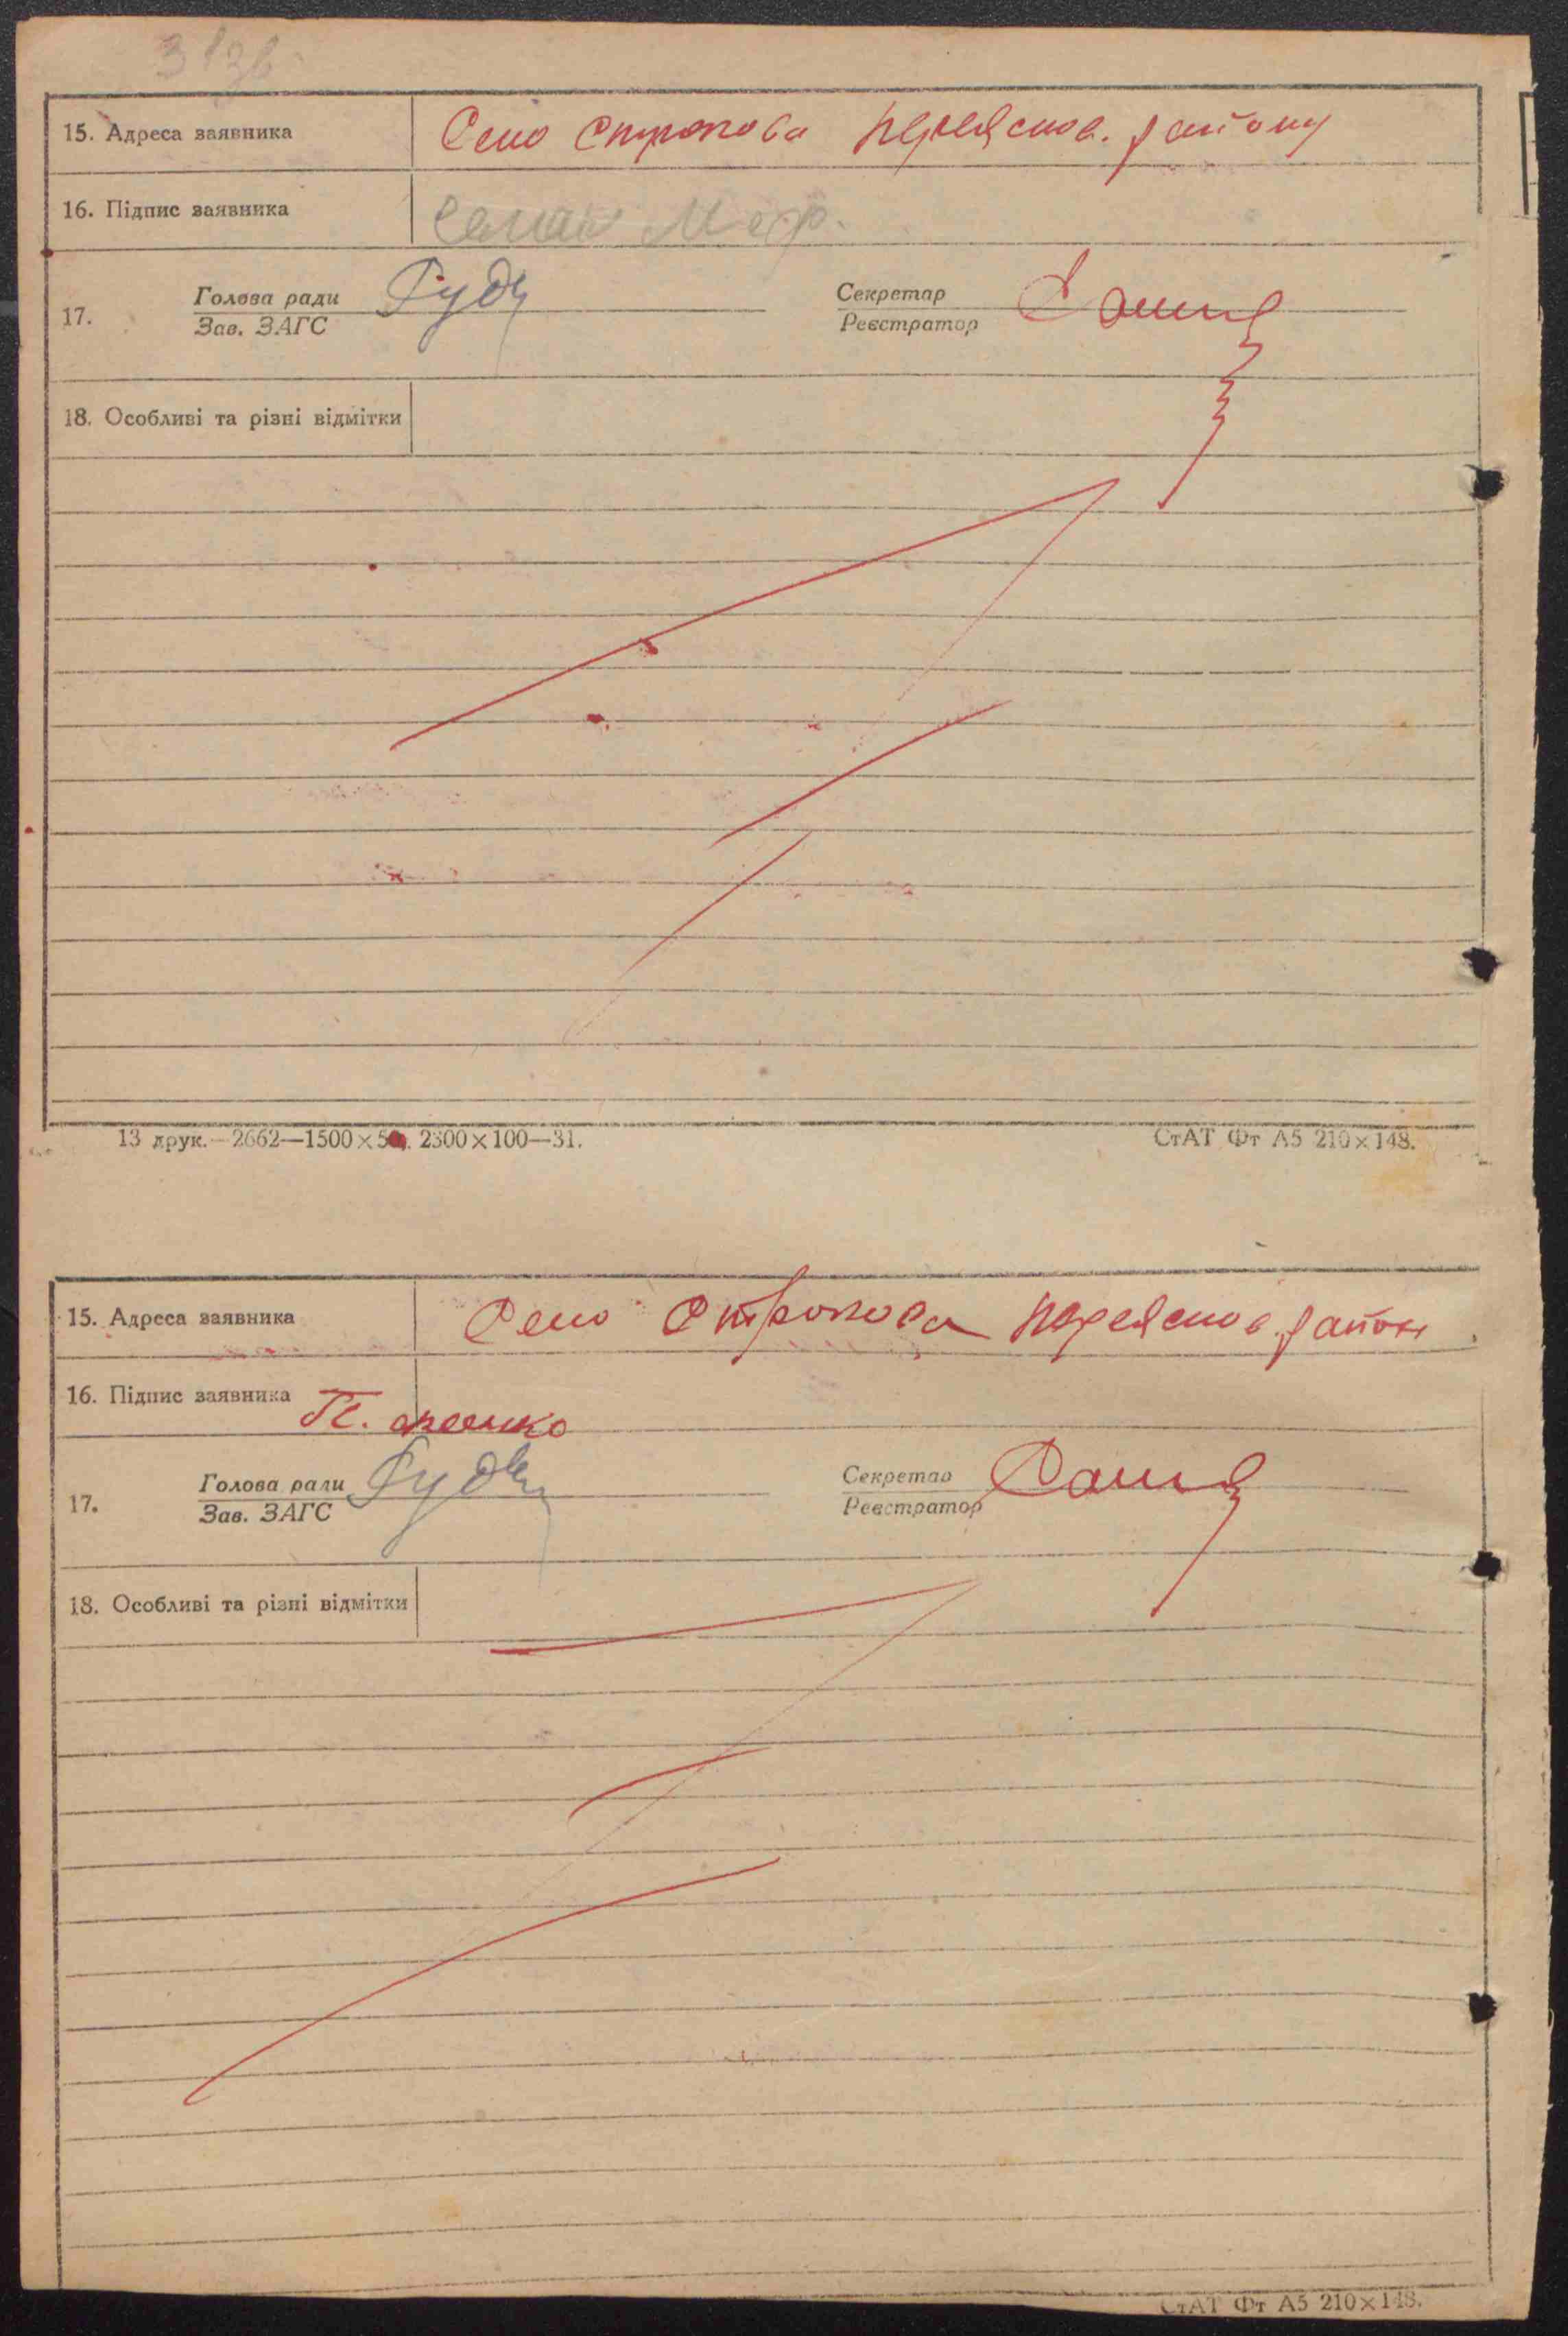 15. Адреса заявника Село Строкова Переяслов. району
16. Підпис заявника
17. Голова ради Секретар
Зав. ЗАГС Реєстратор
18. Особливі та різні відмітки
13 друк.—2662—1500×50. 2300×100—31. СтАТ Фт А5 210×148.
15. Адреса заявника Село Строкова Переяслов. район
16. Підпис заявника
17. Голова ради Секретар
Зав. ЗАГС Реєстратор
18. Особливі та різні відмітки
СтАТ Фт А5 210×148.